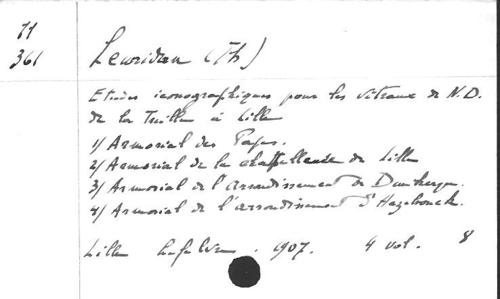 71
361
Leuridan (Th)
Etudes iconographiques pour les vitraux de N.D.
de la Treille à Lille
1/ Armorial des Papes.
2/ Armorial de la chatellenie de Lille
3/ Armorial de l'arrondissement de Dunkerque.
4/ Armorial de l'arrondissement d'Hazebrouck.
Lille Lefebvre. 1907. 4 vol. 8